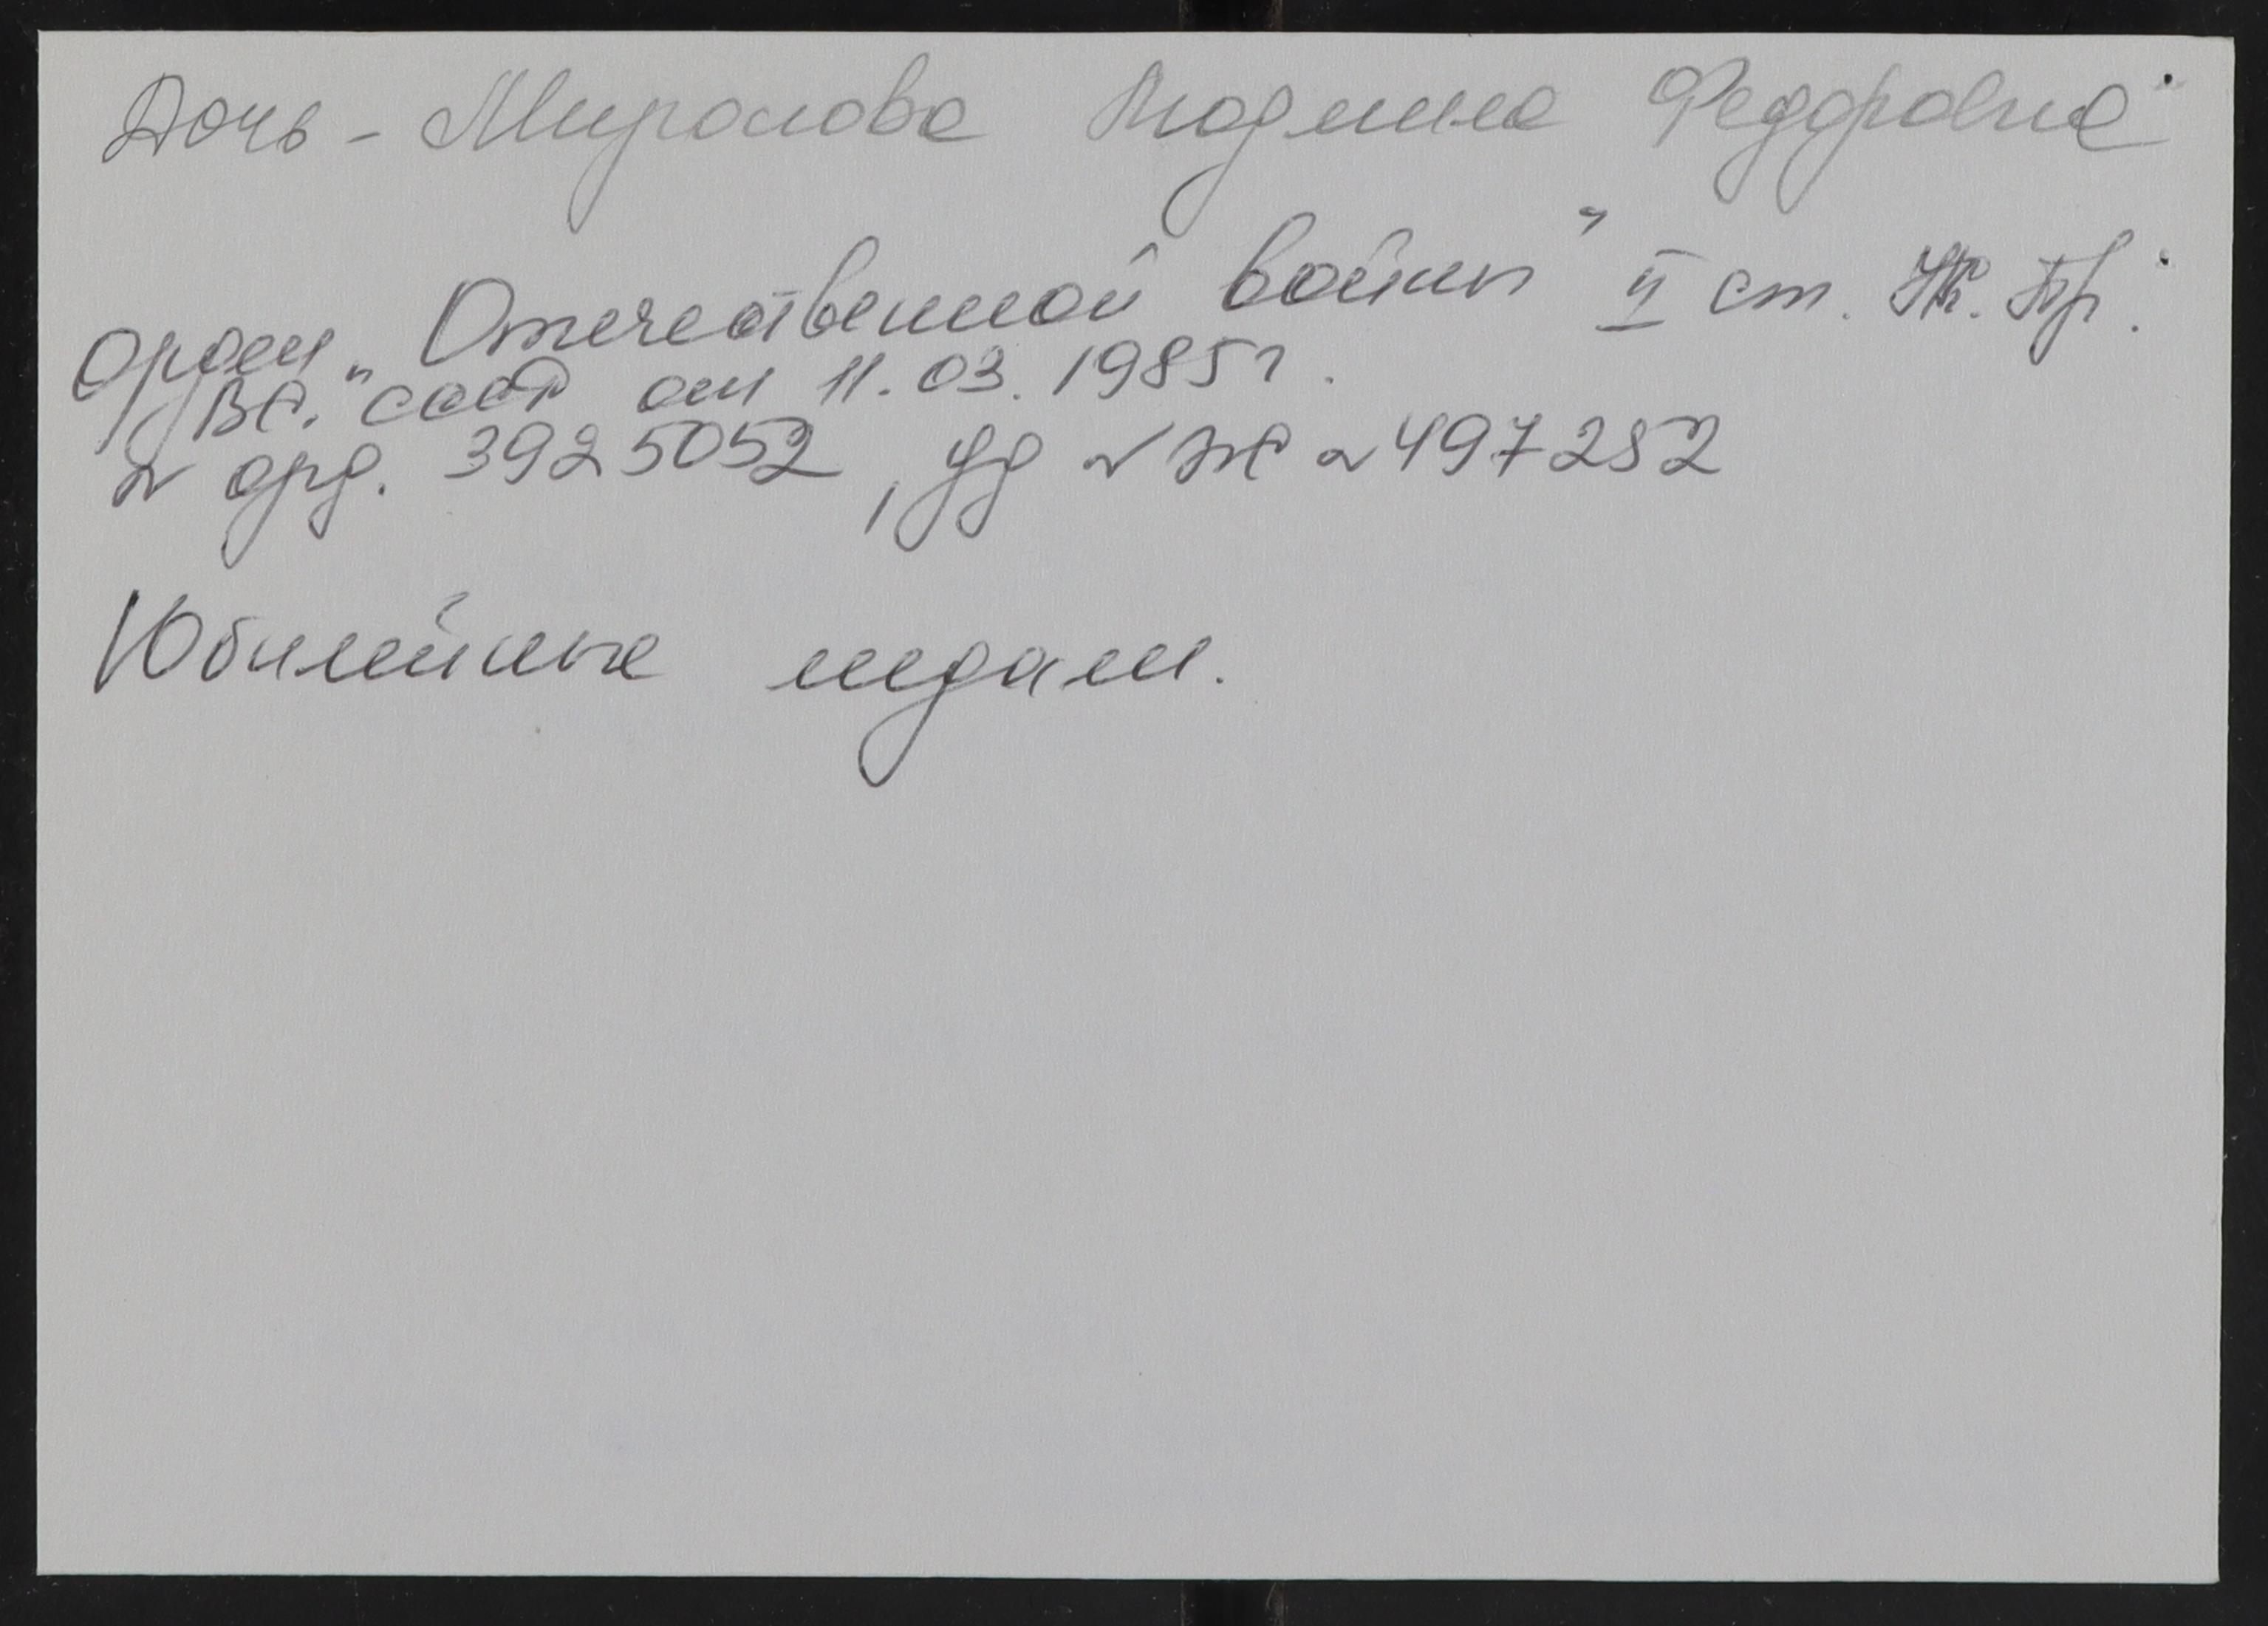 Дочь - Миронова Людмила Федоровна
Орден „Отечественной войны" II ст. Ук. Пр.
ВС. СССР от 11.03.1985г.
№ орд. 3925052, уд № Ж № 497252
Юбилейные медали.